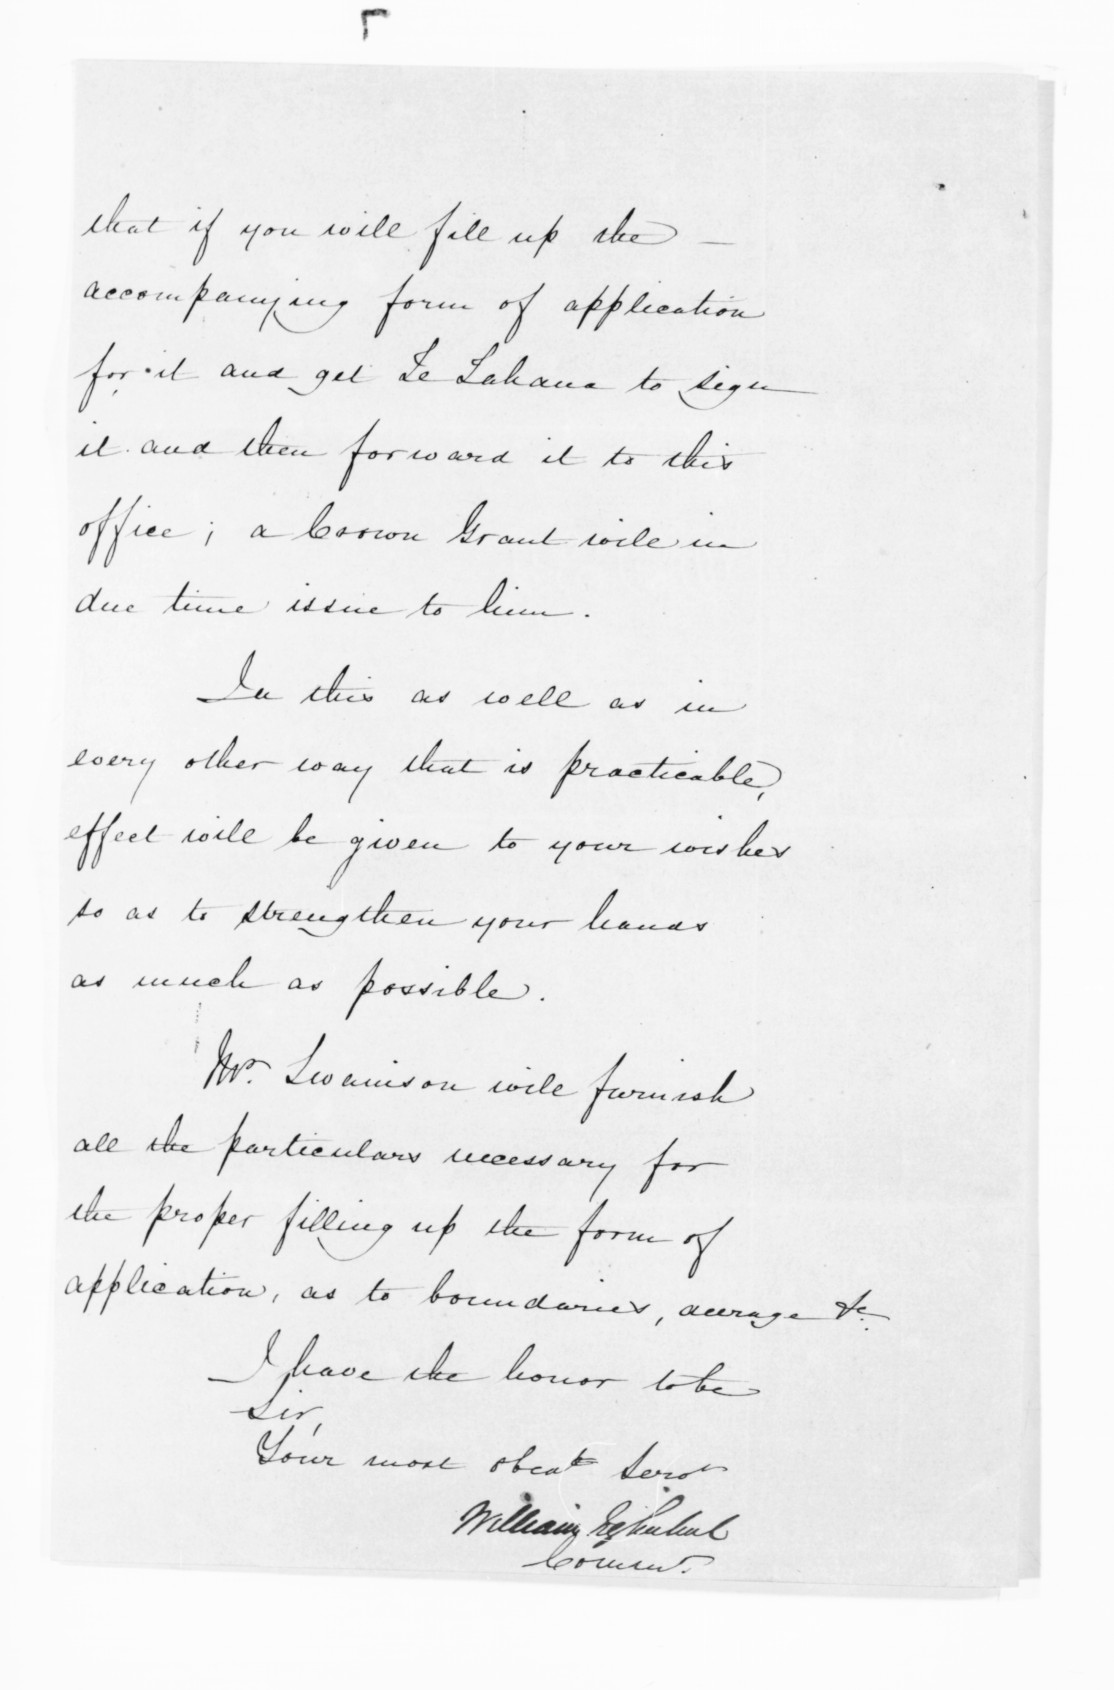 that if you will fill up the —
accompanying form of application
for it and get Te Lahana to sign
it and then forward it to this
office; a Crown Grant will in
due time issue to him.
In this as well as in
every other way that is practicable,
effect will be given to your wishes
so as to strengthen your hands
as much as possible.
Mr. Swainson will furnish
all the particulars necessary for
the proper filling up the form of
application, as to boundaries, acerage &c.
I have the honor to be
Sir,
Your most obedt Servt
William
Commr.